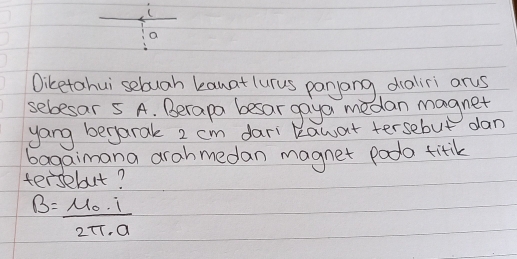 i
a
Diketahui sebuah kawat lurus panjang dialiri arus
sebesar 5 A. Berapa besar gaya medan magnet
yang berjarak 2 cm dari kawat tersebut dan
bagaimana arah medan magnet pada titik
tersebut?
B = μ₀ . i
2π . a